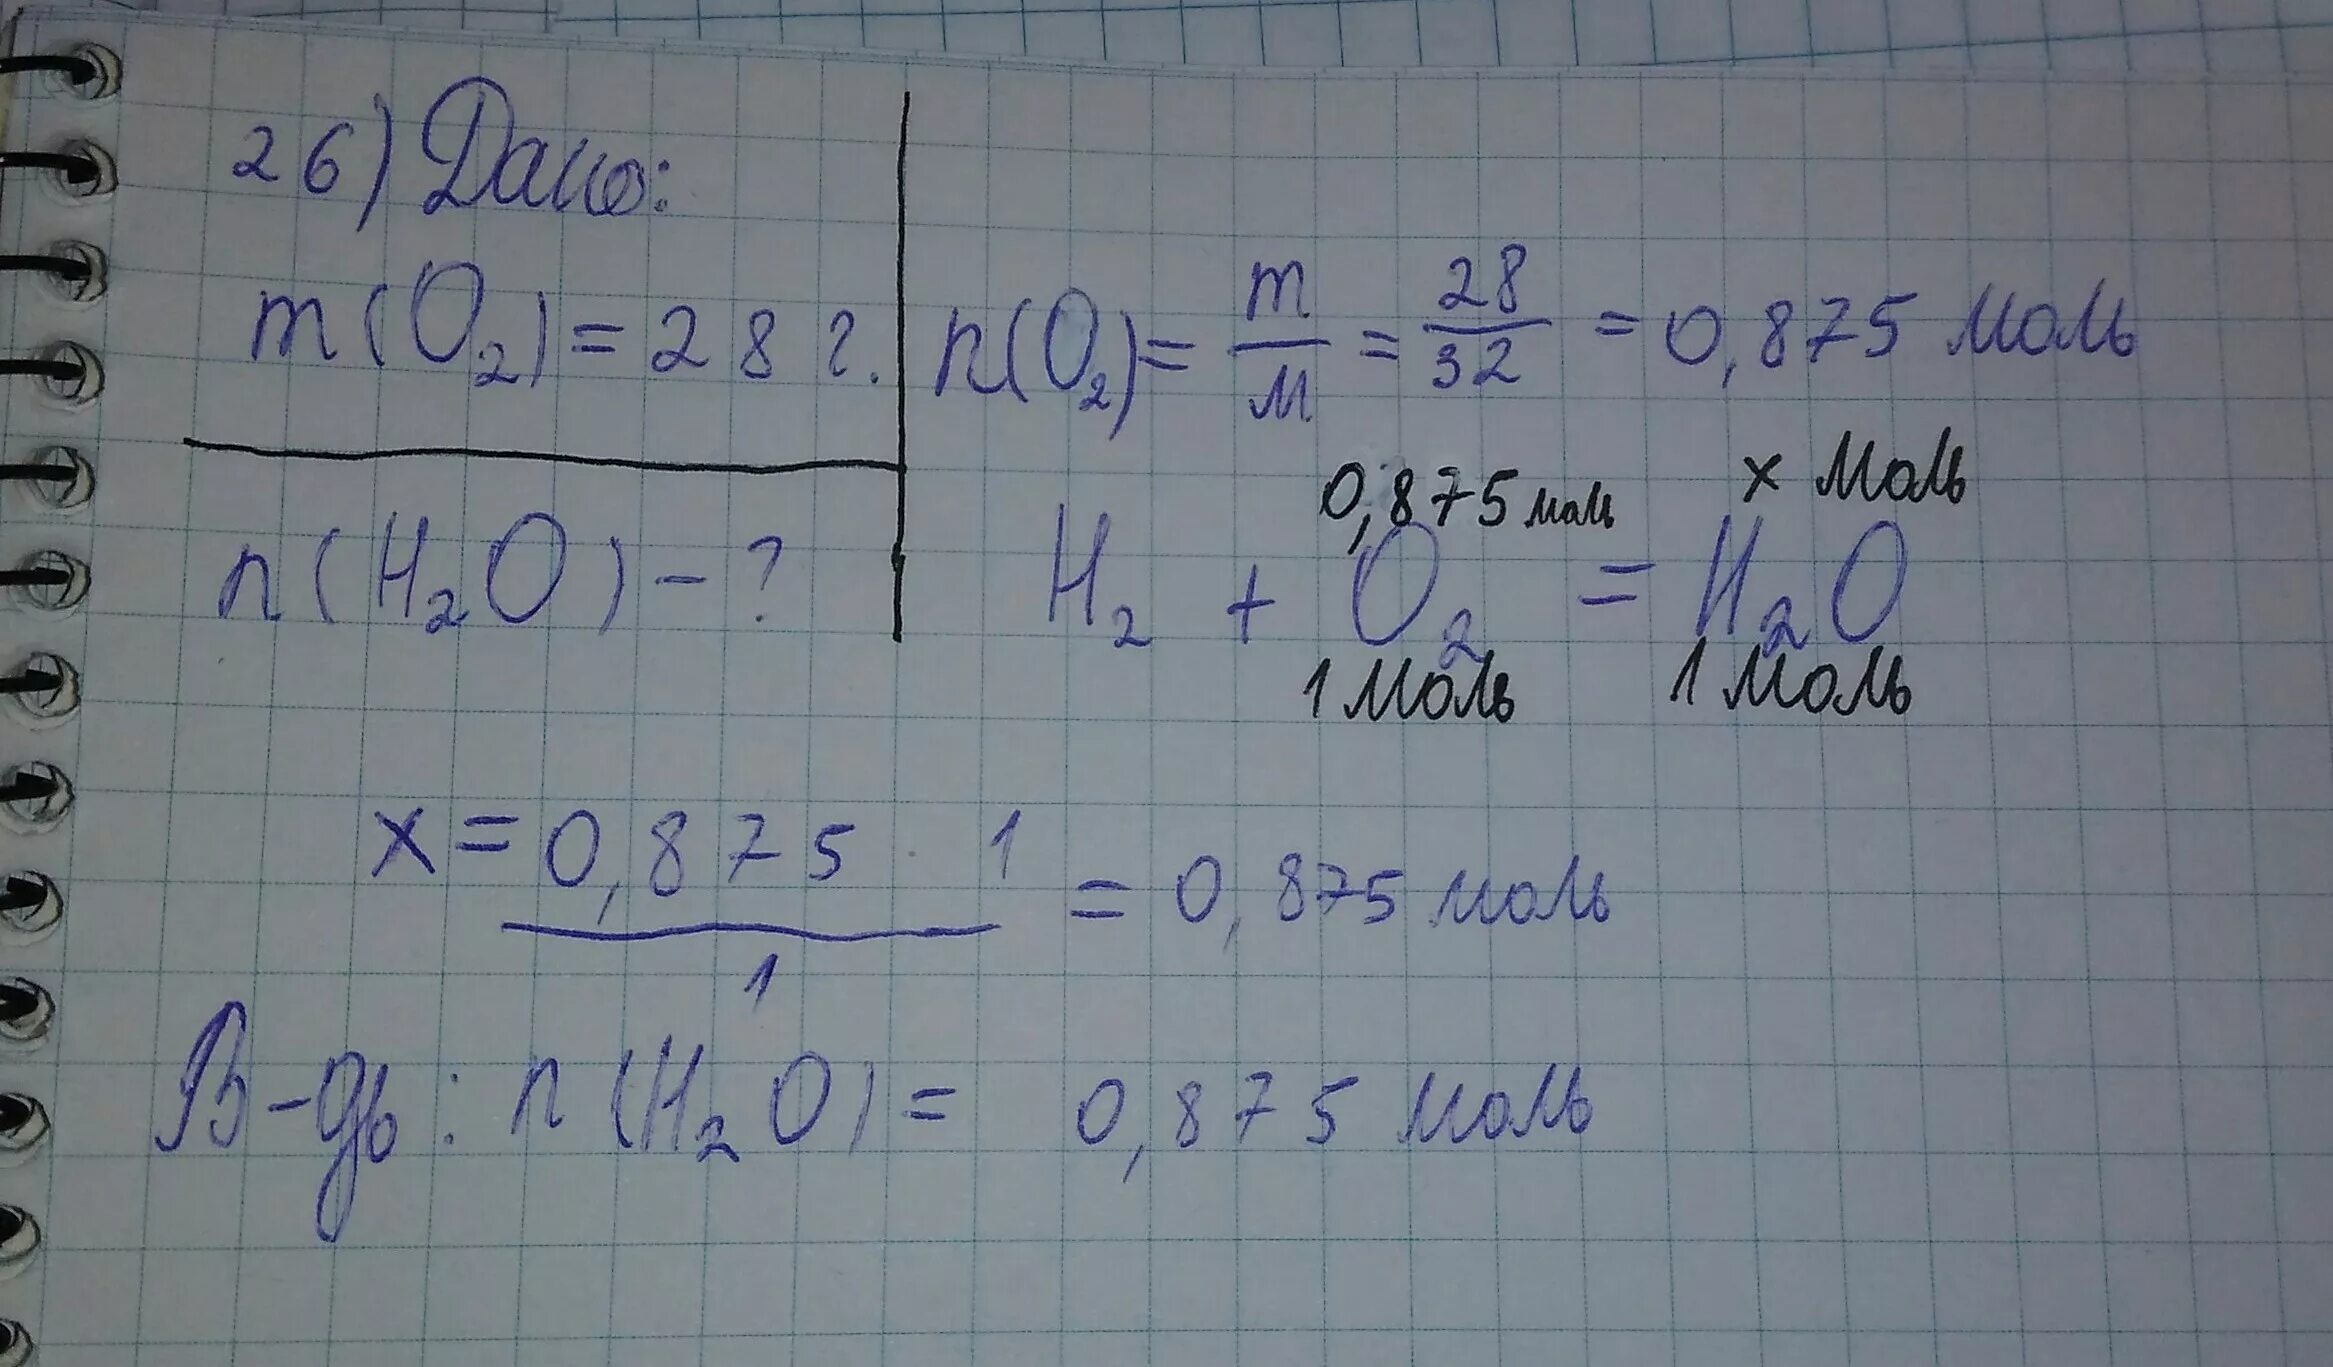 26) Дано:
m(O₂) = 28 г.
n(H₂O) - ?
n(O₂) = m/M = 28/32 = 0,875 моль
0,875 моль x моль
H₂ + O₂ = H₂O
1 моль 1 моль
x = 0,875 · 1 / 1 = 0,875 моль
В-дь: n(H₂O) = 0,875 моль